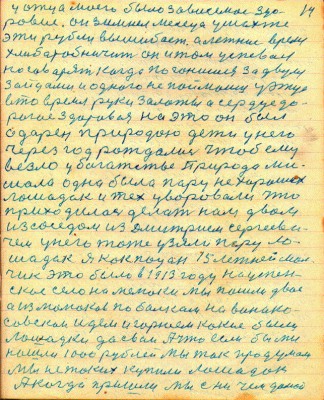 14
у отца моего было зависемое здо-
ровье. он зимние месеца ушахте
эти рубли вышибает, алетние время
хлибаробничит он итом успевал
но говарят когда погонишся За двумя
Зайцами и одного не поймаеш уЭтуд
вто время руки Залоты а сердце до-
рогое Здаровья на это он был
одарен природою дети у него
через год рождалис чтоб ему
везло убогатстве Природа ме-
шала одно была пару нехароших
лошадак и тех уворовали Это
приходилас делат нам двом
изсоседом из Дмитрием сергееви-
чем у него тоже узяли пару ло-
шадак Я как поцан 15 летней мал-
чик Это было в 1913 году
ское село на мы пошли двое
по балкам на
совском идем и горюем какие были
лошадки да свам Ачто если бы ми
нашли 1000 рублей мы так продумали
мы не таких купили лошадок
А когда пришли мы с ни чем домой